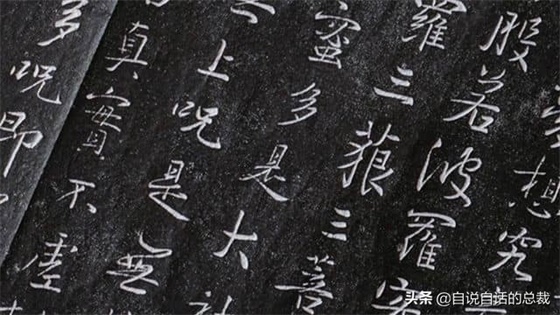 想究
般若波羅蜜
羅三藐三菩
蜜多是大神
上呪是無
真實不虛
多呪即
头条 @自说自话的总裁